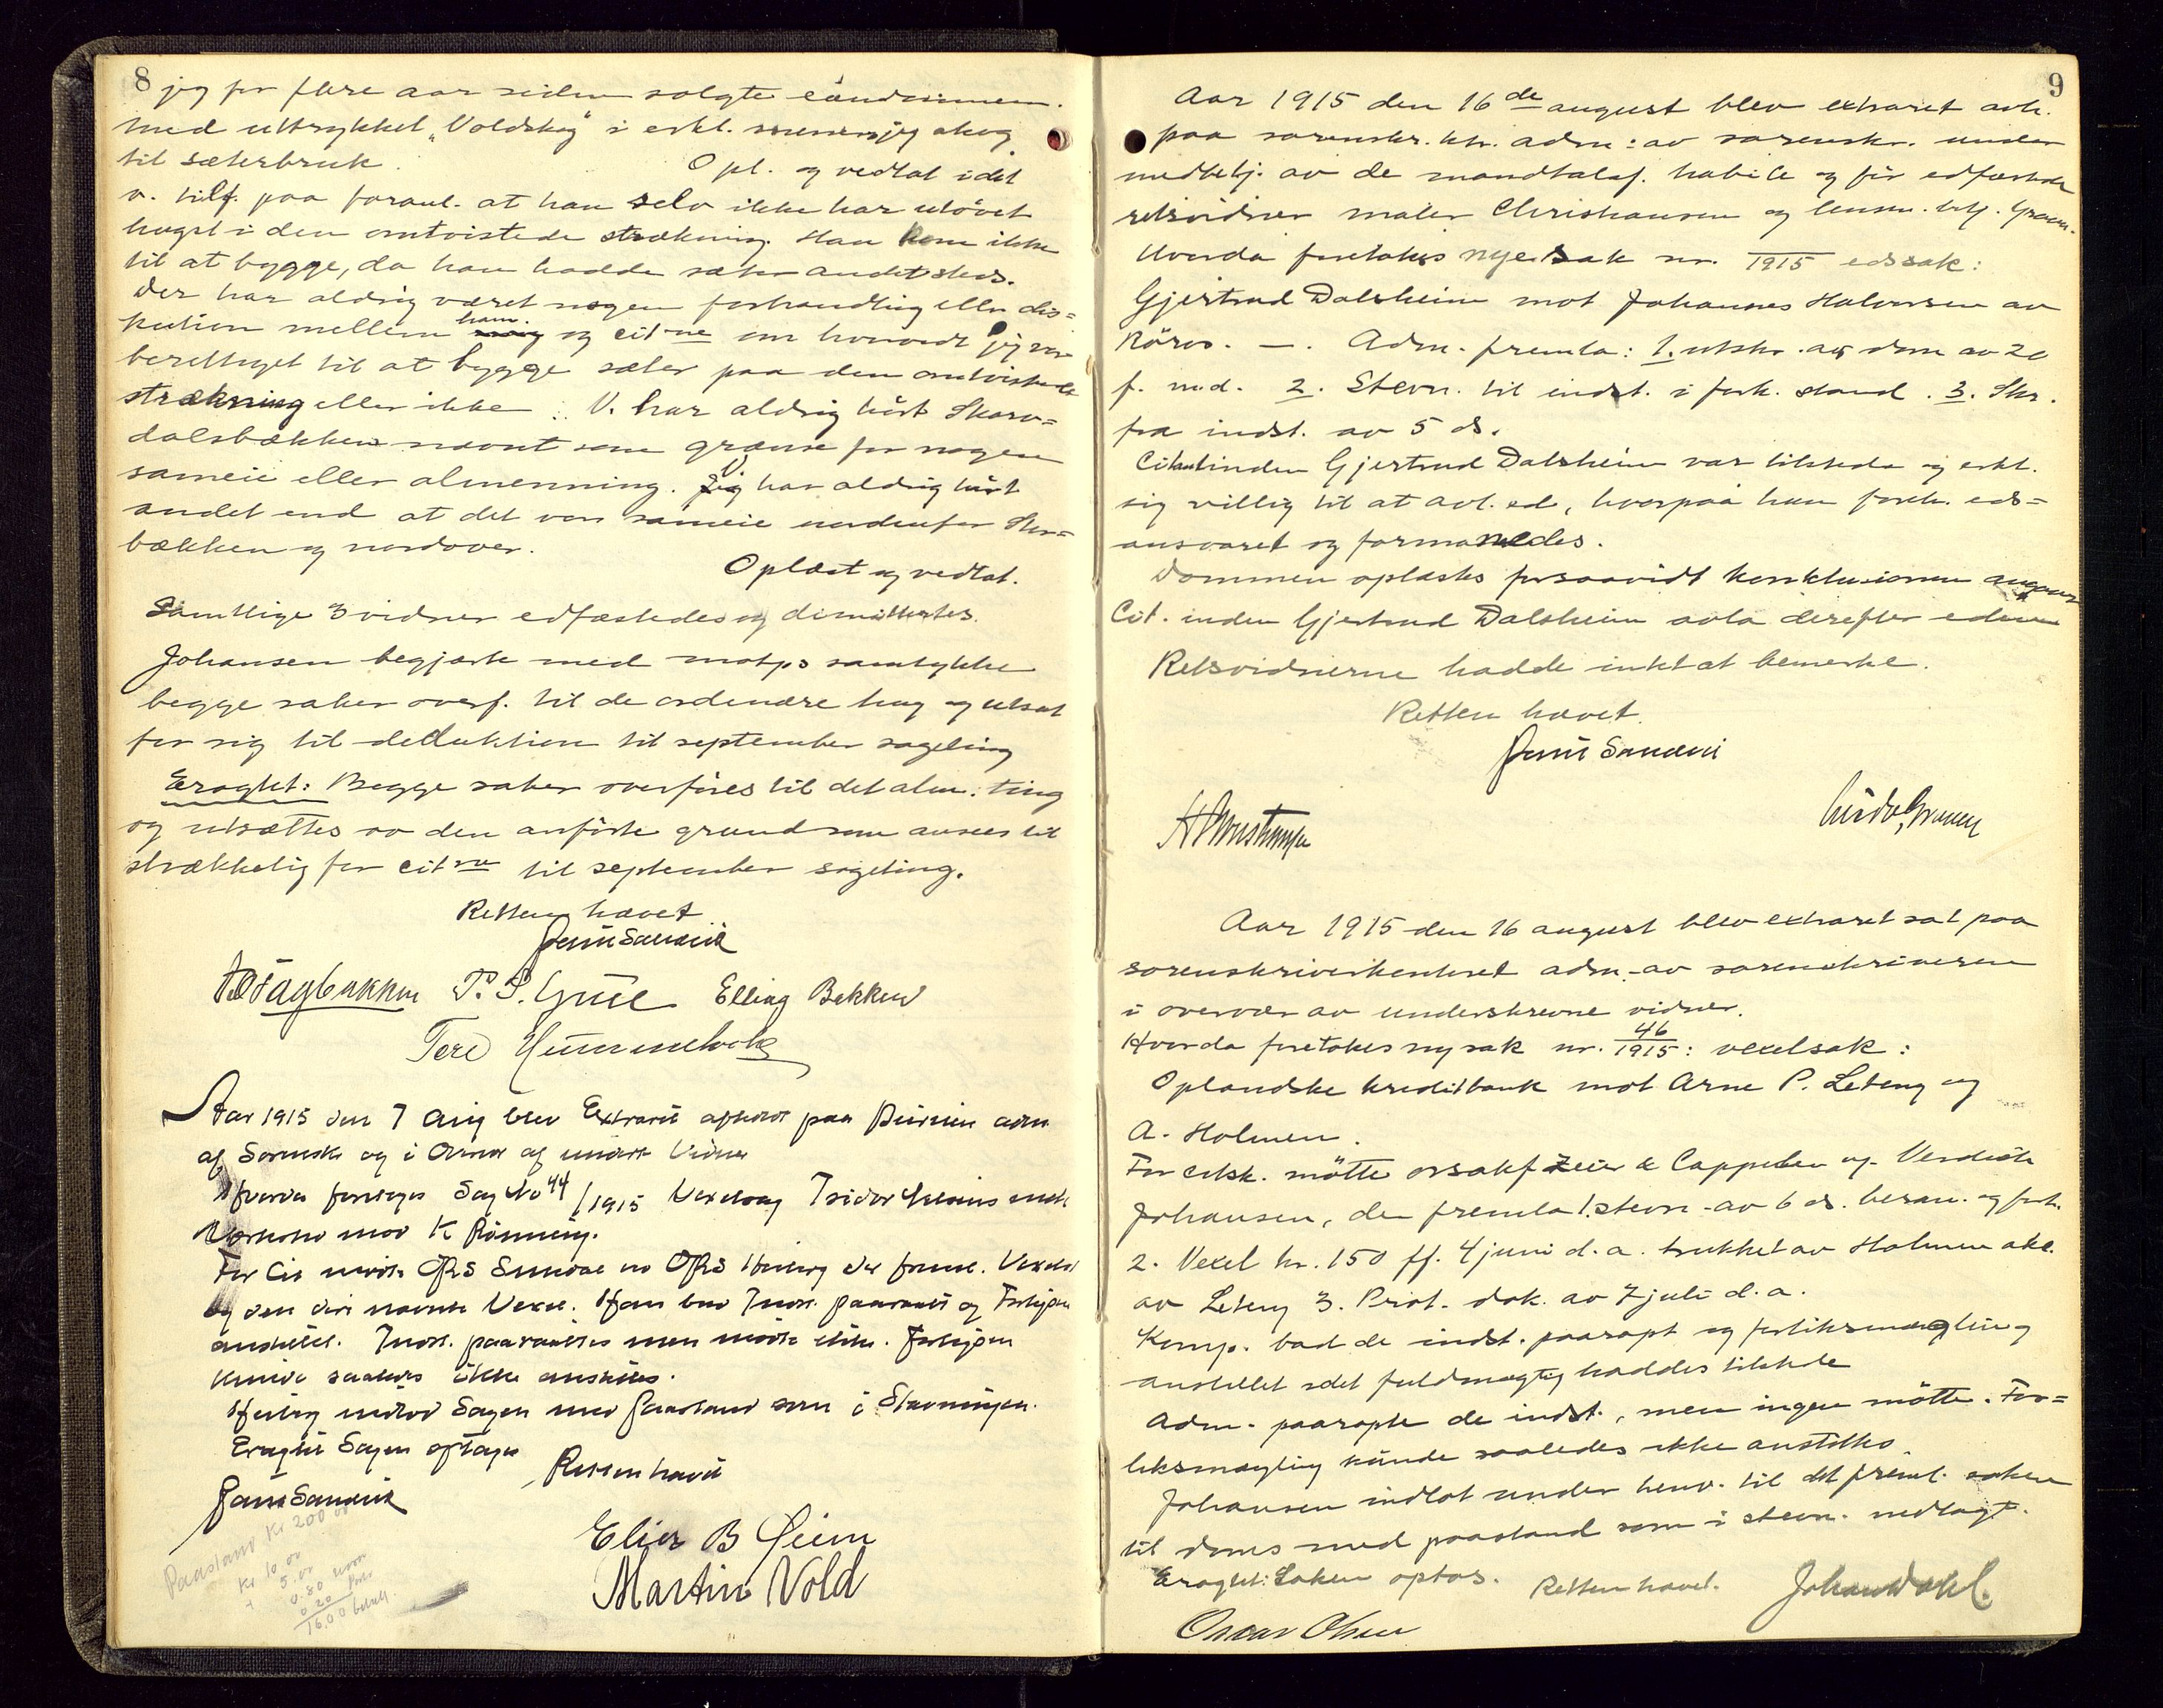 8
jeg for flere aar siden solgte eiendommen.
Med uttrykket "Voldskog" i erkl. mener jeg skog
til sæterbruk.
Opl. og vedtat idet
v. tilf. paa foranl. at han selv ikke har utövet
hugst i den omtvistede strækning. Han kom ikke
til at bygge, da han hadde sæter andetsteds.
Der har aldrig været nogen forhandling eller dis=
kution mellem ham og citne om hvorvidt jeg var
berettiget til at bygge sæter paa den omtvistede
strækning eller ikke. V. har aldrig hört Skarv=
dalsbækken nævnt som grænse for nogen
sameie eller almenning. V har aldrig hört
andet end at det var sameie nordenfor
bækken og nordover.
Oplæst og vedtat.
Samtlige 3 vidner edfæstedes og dimittertes.
Johansen begjærte med motps samtykke
begge saker overf. til de ordinære ting og utsat
for sig til deduktion til september sageting
Eragtet: Begge saker overföres til det alm. ting
og utsættes av den anförte grund som ansees til
strækkelig for citne til september sageting.
Retten hævet
Jens Sandvik
Fagbakken P. P. Elling Bakken
Tere
Aar 1915 den 7 Aug blev Extraret afholdt paa adm
af Sorensk og i Overvær af undert Vidner
Hvorda foretoges Sag No 44/1915 Vexelsag Isidor
mod K Rönning.
For Cit mötte ORS Sundal ved ORS Heiberg der freml. Vexelst
og den deri nævnte Vexel. Han bad Indst. paaraabt og Forligsm
anstillet. Indst. paaraabtes men mödte ikke. Forligsm
kunde saaledes ikke anstilles.
Heiberg indlod Sagen med Paastand som i Stævningen.
Eragtet Sagen optages
Retten hævet
Jens Sandvik
Elier B Öien
Martin Vold
Paastand Kr 200 00
Kr 10 00
5.00
0.80
0 20
16.00 betalt.
9
Aar 1915 den 16de august blev extraret avh.
paa sorenskr. ktr. adm: av sorenskr. under
medbetj. av de mandtalsf. habile og för edfæstede
retsvidner maler Christiansen og lensm. betj.
Hvorda foretokes nye sak nr. 1915 edssak:
Gjertrud Dalsheim mot Johannes Halvorsen av
Röros. —. Adm. fremla: 1. utskr. av dom av 20
f. m.d. 2. Stevn. til indst. i fork. stand. 3. Skr.
fra indst. av 5 ds.
Citantinden Gjertrud Dalsheim var tilstede og erkl.
sig villig til at avl. ed, hvorpaa hun foreh. eds=
ansvaret og formanedes.
Dommen oplæstes forsaavidt konklusionen angaar
Cit. inden Gjertrud Dalsheim avla derefter eden
Retsvidnerne hadde intet at bemerke.
Retten hævet.
Jens Sandvik
H Christiansen
Aar 1915 den 16 august blev extraret sat paa
sorenskriverkontoret adm. av sorenskriveren
i overvær av underskrevne vidner.
Hvorda foretokes ny sak nr. 46/1915: vexelsak:
Oplandske kreditbank mot Arne P. Leteng og
A. Holmen.
For citsk. mötte orsakf Zeier & Cappelen og Verdick
Johansen, der fremla 1. stevn. av 6 ds. beram. og fork.
2. Vexel kr. 150 ff. 4 juni d. a. trukket av Holmen akc.
av Leteng 3. Prot. dok. av 7 juli d. a.
Komp. bad de indst. paaropt og forliksmægling
anstillet idet fuldmægtig haddes tilstede
Adm. paaropte de indst., men ingen mötte. For=
liksmægling kunde saaledes ikke anstilles.
Johansen indlot under henv. til det freml. saken
til doms med paastand som i stevn. nedlagt.
Eragtet: Saken optas. Retten hævet.
Johan Dahl.
Oscar Olsen